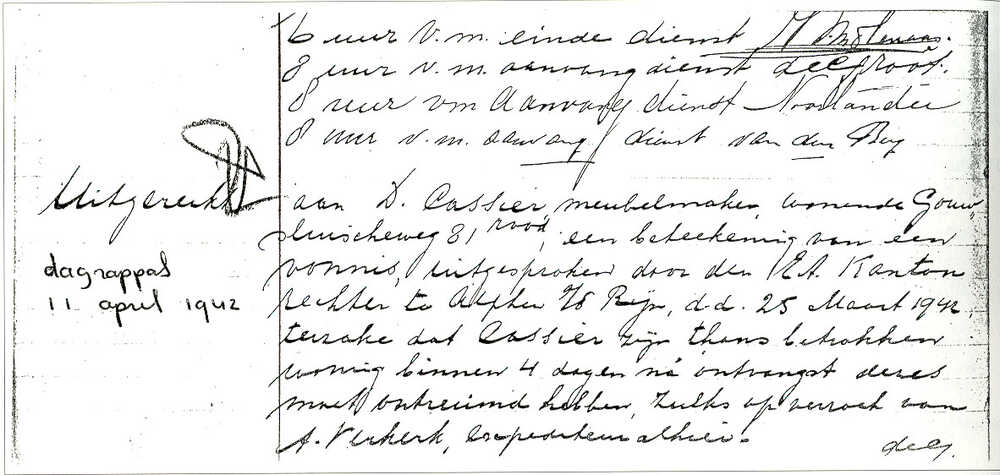 6 uur v.m. einde dienst H v. Molenaar.
8 uur v.m. aanvang dienst de Groot.
8 uur vm Aanvang dienst Noorlander
8 uur v.m. aanvang dienst van den Berg
Uitgereikt
aan D. Cassier, meubelmaker, wonende Gouw
sluischeweg 81 rood, een beteekening van een
vonnis, uitgesproken door den E.A. Kanton
rechter te Alphen a/d Rijn, d.d. 25 Maart 1942,
terzake dat Cassier zijn thans betrokken
woning binnen 4 dagen na ontvangst dezes
moet ontruimd hebben, zulks op verzoek van
A. Verkerk, expediteur alhier.
deG.
dagrappot
11 april 1942